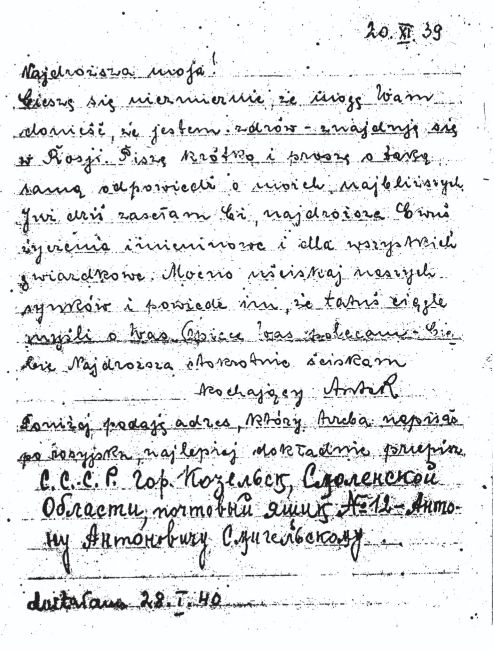 20.XI.39
Najdroższa moja!
Cieszę się niezmiernie, że mogę Wam
donieść, że jestem zdrów – znajduję się
w Rosji. Piszę krótko i proszę o taką
samą odpowiedź o moich najbliższych
Już dziś zasełam Ci, najdroższa Ewuś
życzenia imieninowe i dla wszystkich
gwiazdkowe. Mocno uściskaj naszych
synków i powiedz im, że tatuś ciągle
myśli o Was. Opiece Was polecam – Cie-
bie Najdroższa stokrotnie ściskam
kochający Antek
Poniżej podaję adres, który trzeba napisać
po rosyjsku, najlepiej dokładnie przepisz
С.С.С.Р. Гор. Козельск, Смоленской
Области, почтовый ящик №12 – Анто-
ну Антоновичу
28.I.40